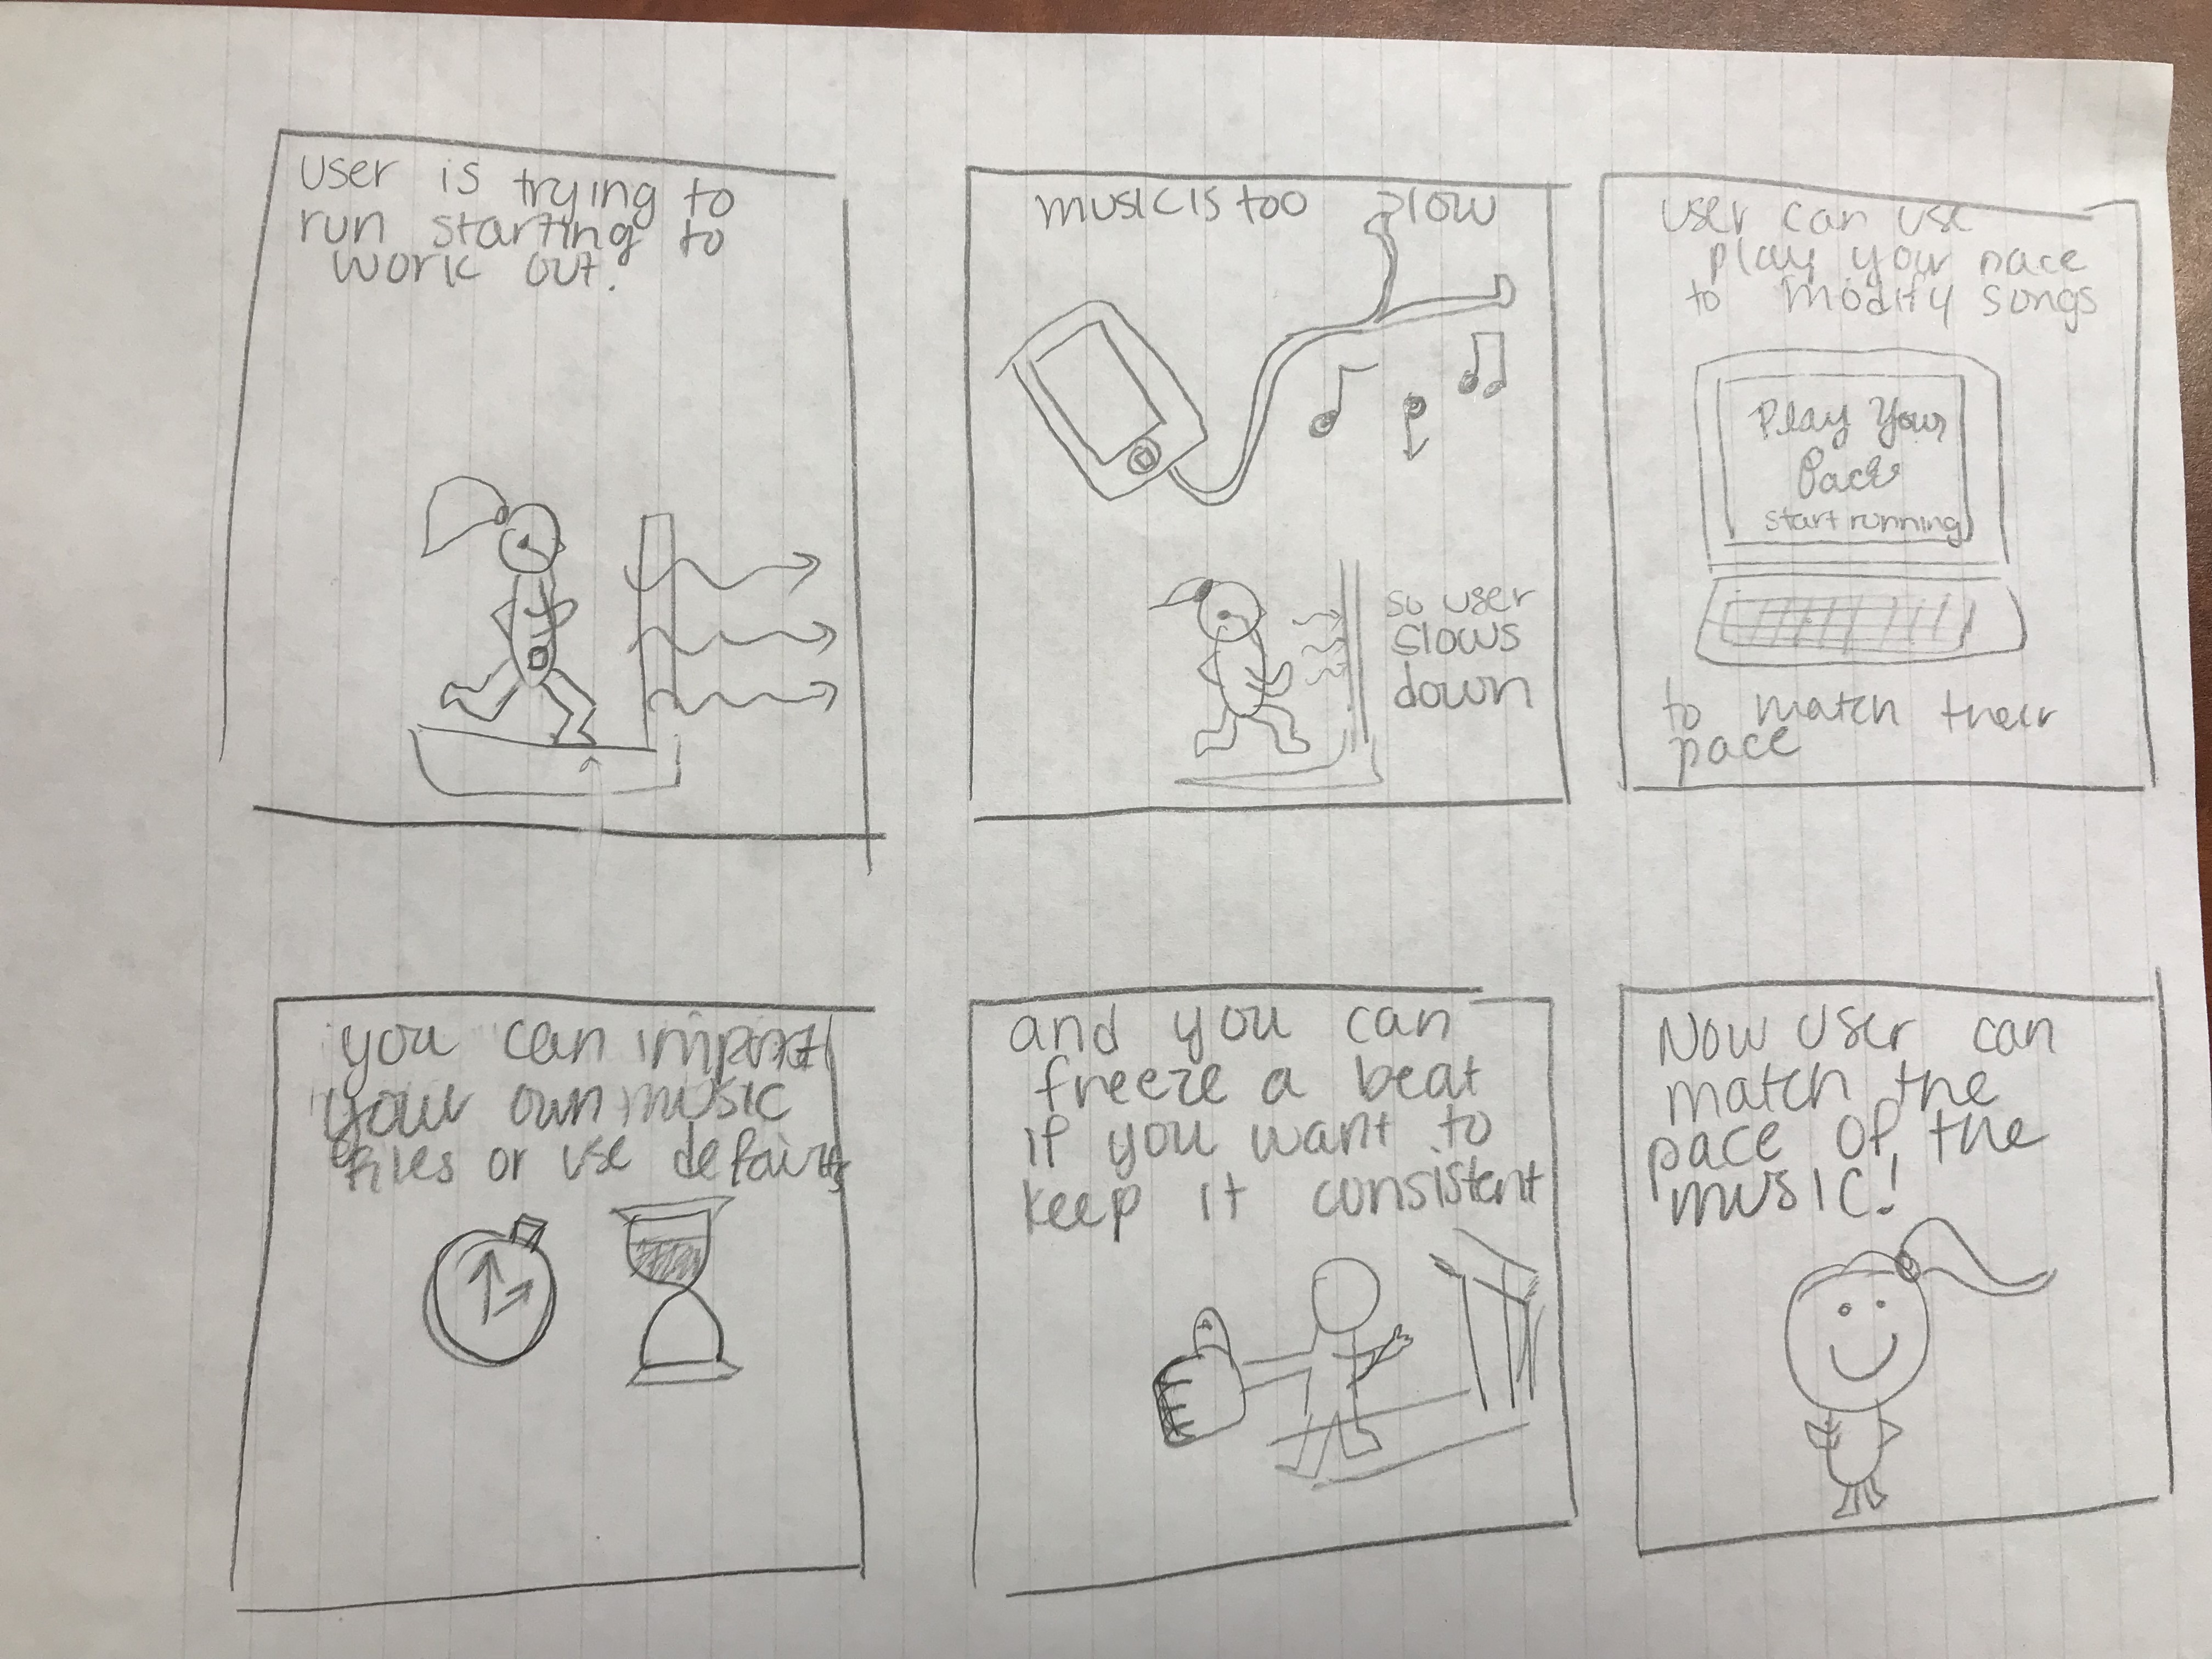 user is trying to
run starting to
work out!
music is too slow
so user
slows
down
user can use
play your pace
to modify songs
Play Your
Pace
start running
to match their
pace
you can import
your own music
files or use defaults
and you can
freeze a beat
if you want to
keep it consistent
Now user can
match the
pace of the
music!